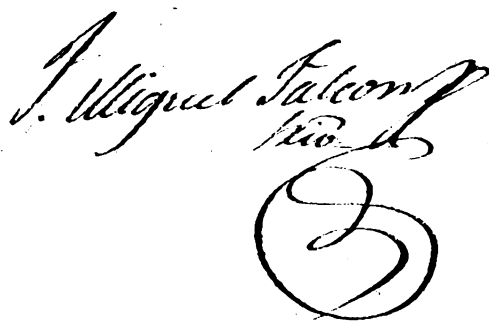 J. Miguel Falcon
Srio